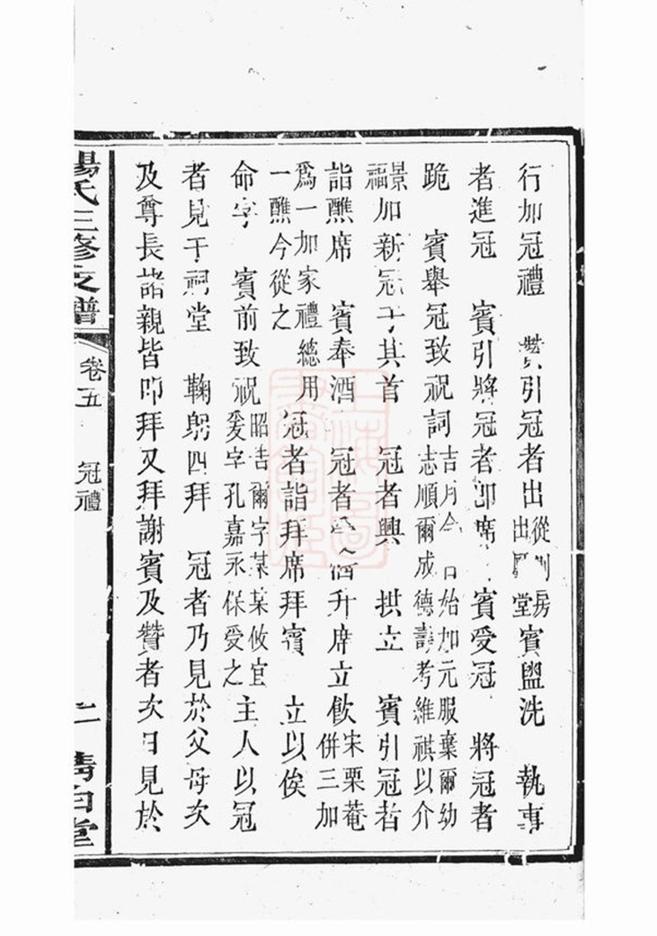 行加冠禮 贊引冠者出從房出堂賓盥洗 執事
者進冠 賓引將冠者卽席 賓受冠 將冠者
跪 賓舉冠致祝詞吉月令日始加元服棄爾幼志順爾成德壽考維祺以介
景福加新冠于其首 冠者興 拱立 賓引冠者
詣醮席 賓奉酒 冠者受酒升席立飲宋栗菴併三加
爲一加家禮總用一醮今從之 冠者詣拜席拜賓 立以俟
命字 賓前致祝昭吿爾字某某攸宜爰字孔嘉永保受之 主人以冠
者見于祠堂 鞠躬四拜 冠者乃見於父母次
及尊長諸親皆四拜又拜謝賓及贊者次日見於
楊氏三修支譜
卷五
冠禮
二